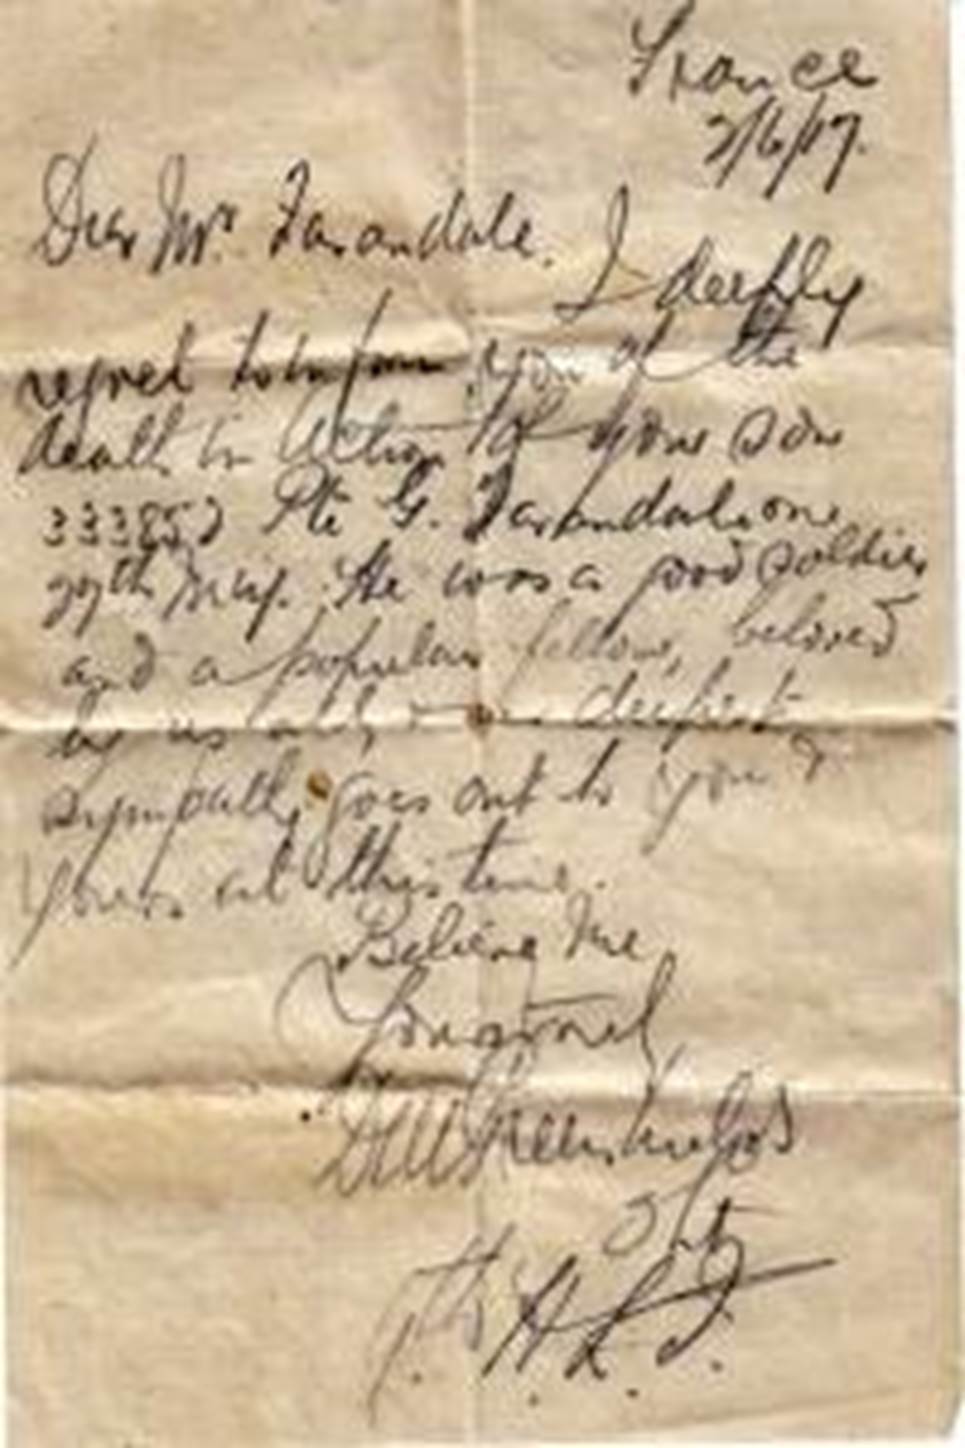 France
2/6/17.
Dear Mr. Farandale.
I deeply
regret to inform you of the
death in Action of your son
333852 Pte G. Farandale on
27th May. He was a good soldier
and a popular fellow, beloved
by us all, deepest
sympathy goes out to you &
yours at this time.
Believe Me
Yours
H. L. I.